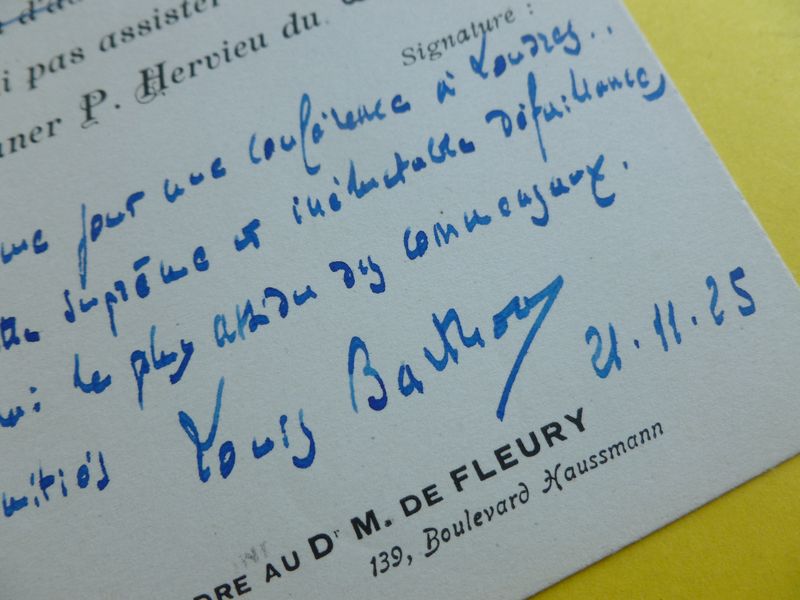 i pas assister
ner P. Hervieu du
Signature :
me jour une conférence à Londres..
suprême et inéluctable défaillance,
le plus assidu des commensaux.
mitiés Louis Barthou 21.11.25
DRE AU Dr M. DE FLEURY
139, Boulevard Haussmann